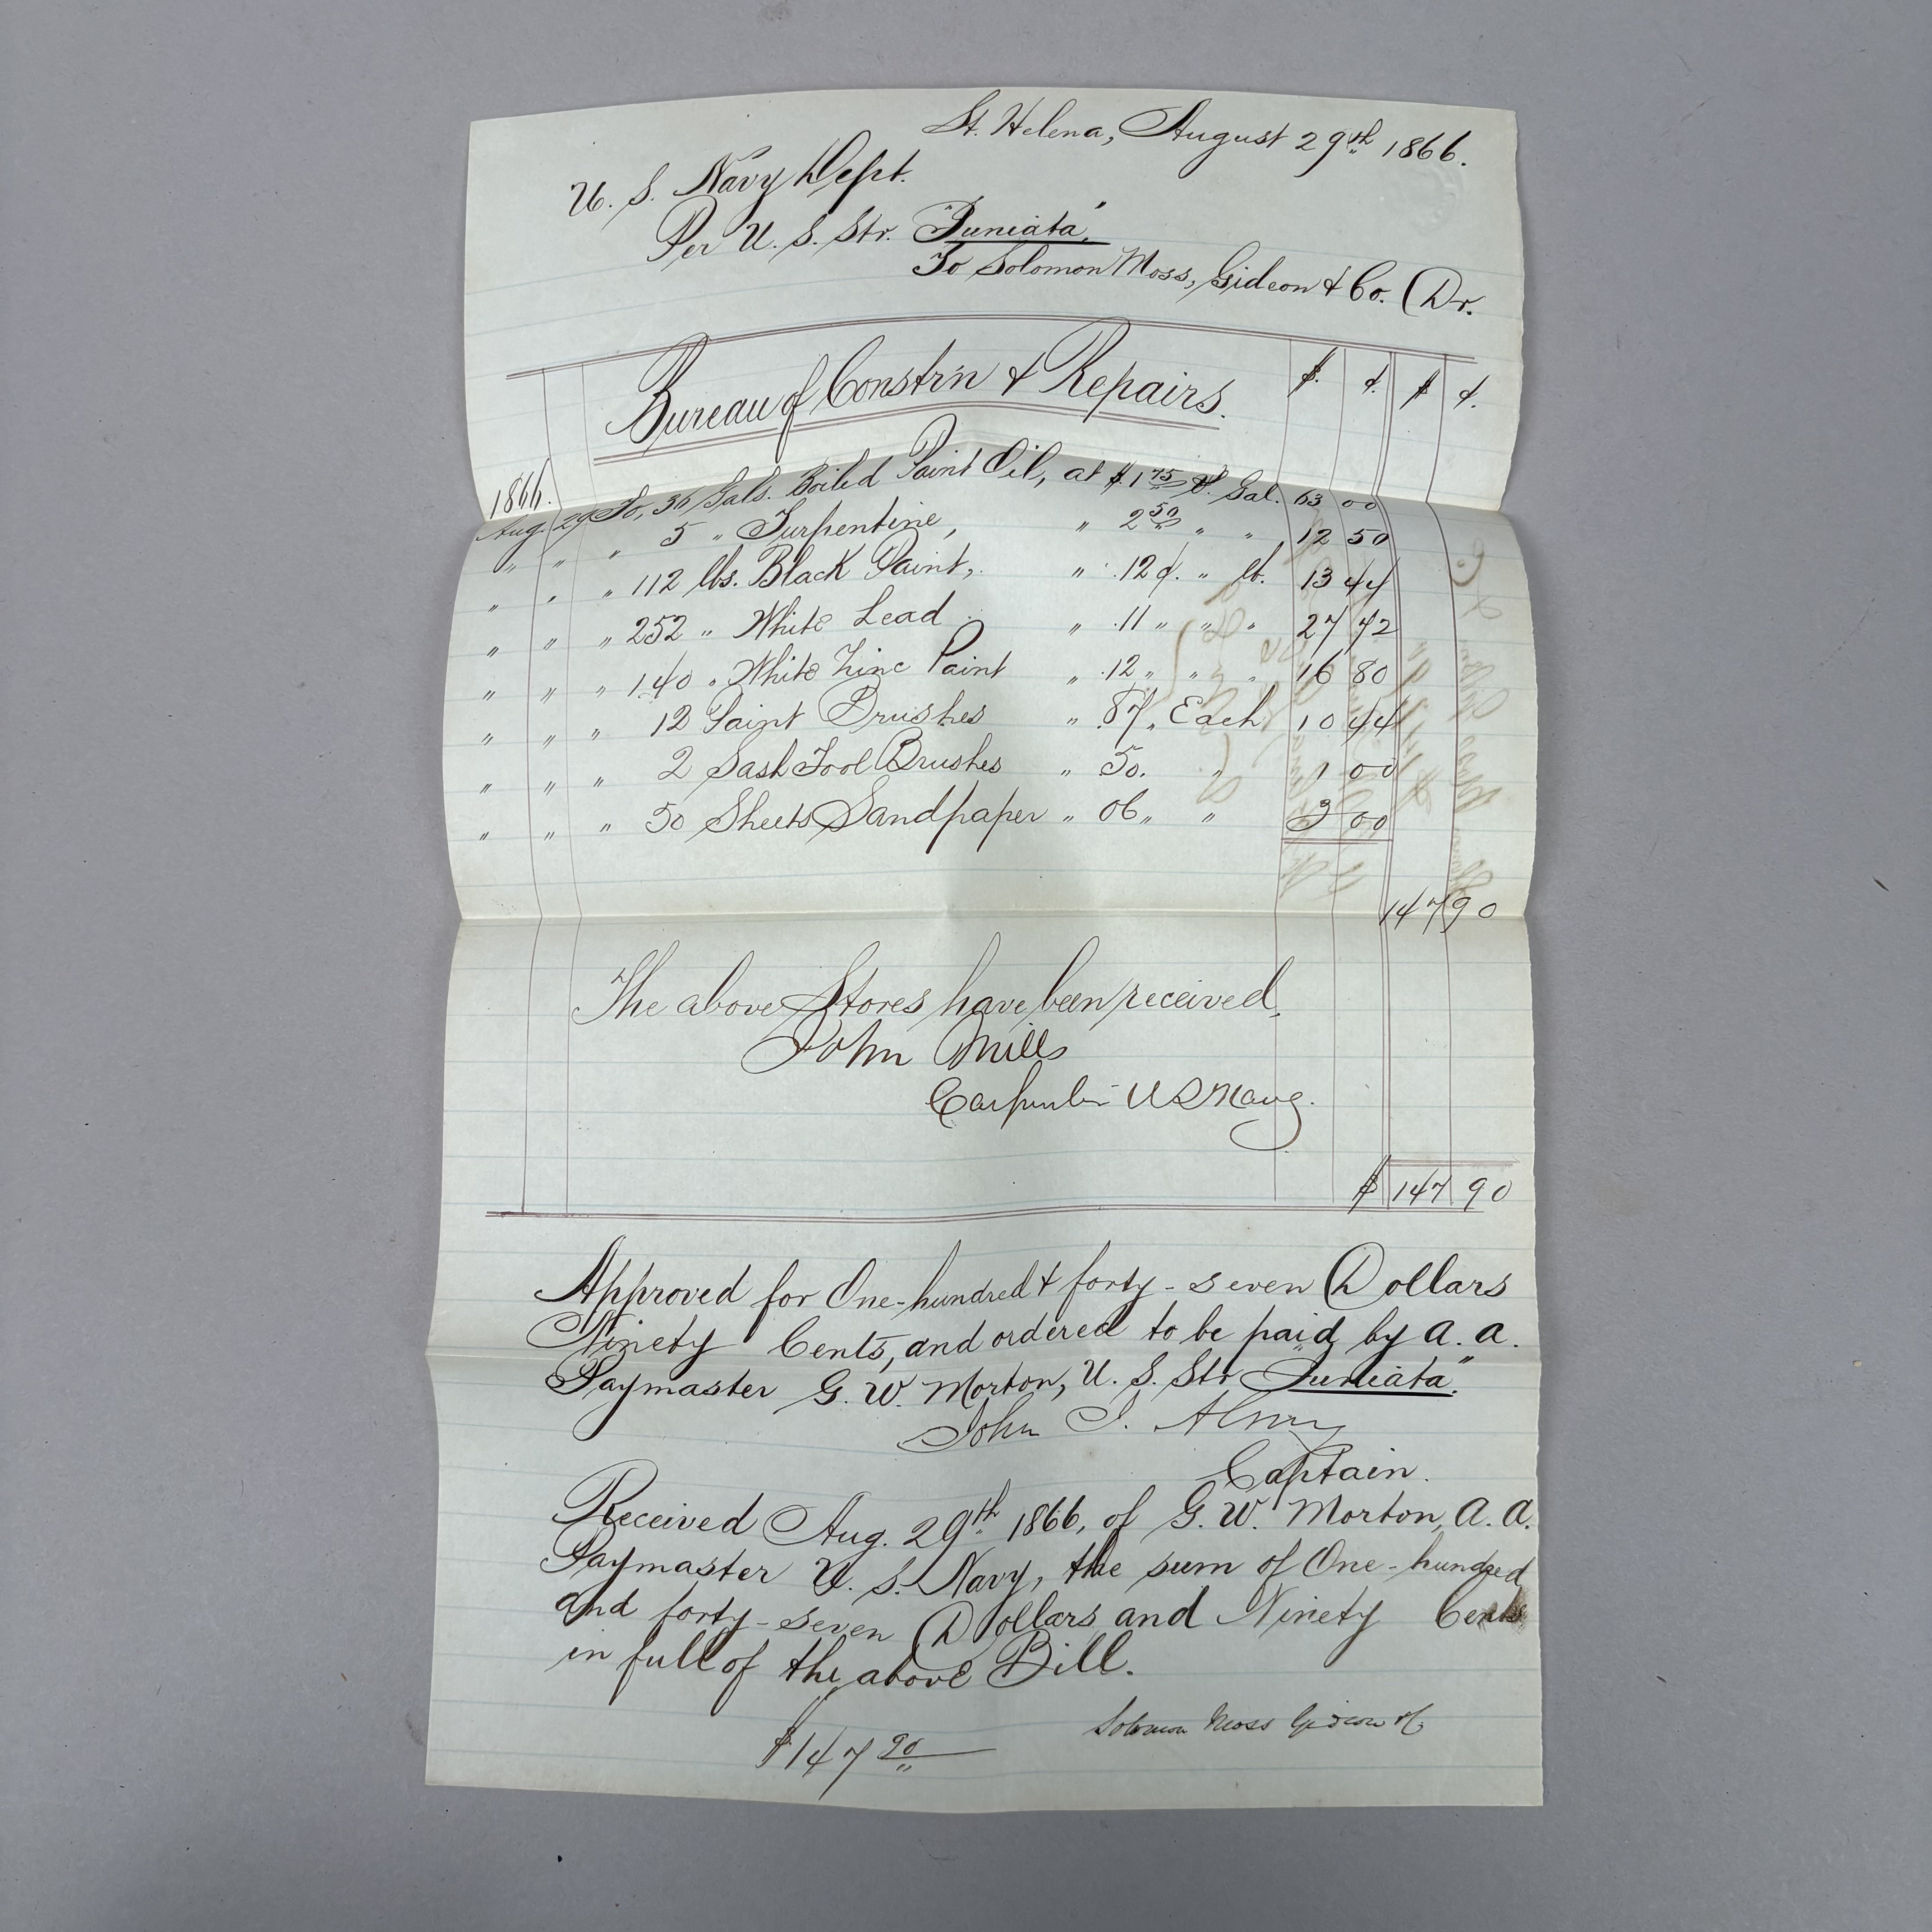 St. Helena, August 29th 1866.
U. S. Navy Dept.
Per U. S. Str. "Juniata"
To Solomon Moss, Gideon & Co. Dr.
Bureau of Constr'n & Repairs. $. ¢. $ ¢.
1866.
Aug. 29 To, 36 Gals. Boiled Paint Oil, at $.1 75 ⅌. Gal. 63 00
" " " 5 " Turpentine, " 2 50 " " 12 50
" " " 112 lbs. Black Paint, " .12 ¢. " lb. 13 44
" " " 252 " White Lead " .11 " " " 27 72
" " " 140 " White Zinc Paint " .12 " " " 16 80
" " " 12 Paint Brushes " .87 " Each 10 44
" " " 2 Sash Tool Brushes " 50. " 1 00
" " " 50 Sheets Sandpaper " 06 " " 3 00
147 90
The above Stores have been received,
John Mills
Carpenter U S Navy.
$ 147 90
Approved for One-hundred & forty-seven Dollars
Ninety Cents, and ordered to be paid by A. A.
Paymaster G. W. Morton, U. S. Str "Juniata".
John J. Almy
Captain.
Received Aug. 29th 1866, of G. W. Morton, A. A.
Paymaster U. S. Navy, the sum of One-hundred
and forty-seven Dollars and Ninety Cents
in full of the above Bill.
Solomon Moss Gideon & Co
$147 90